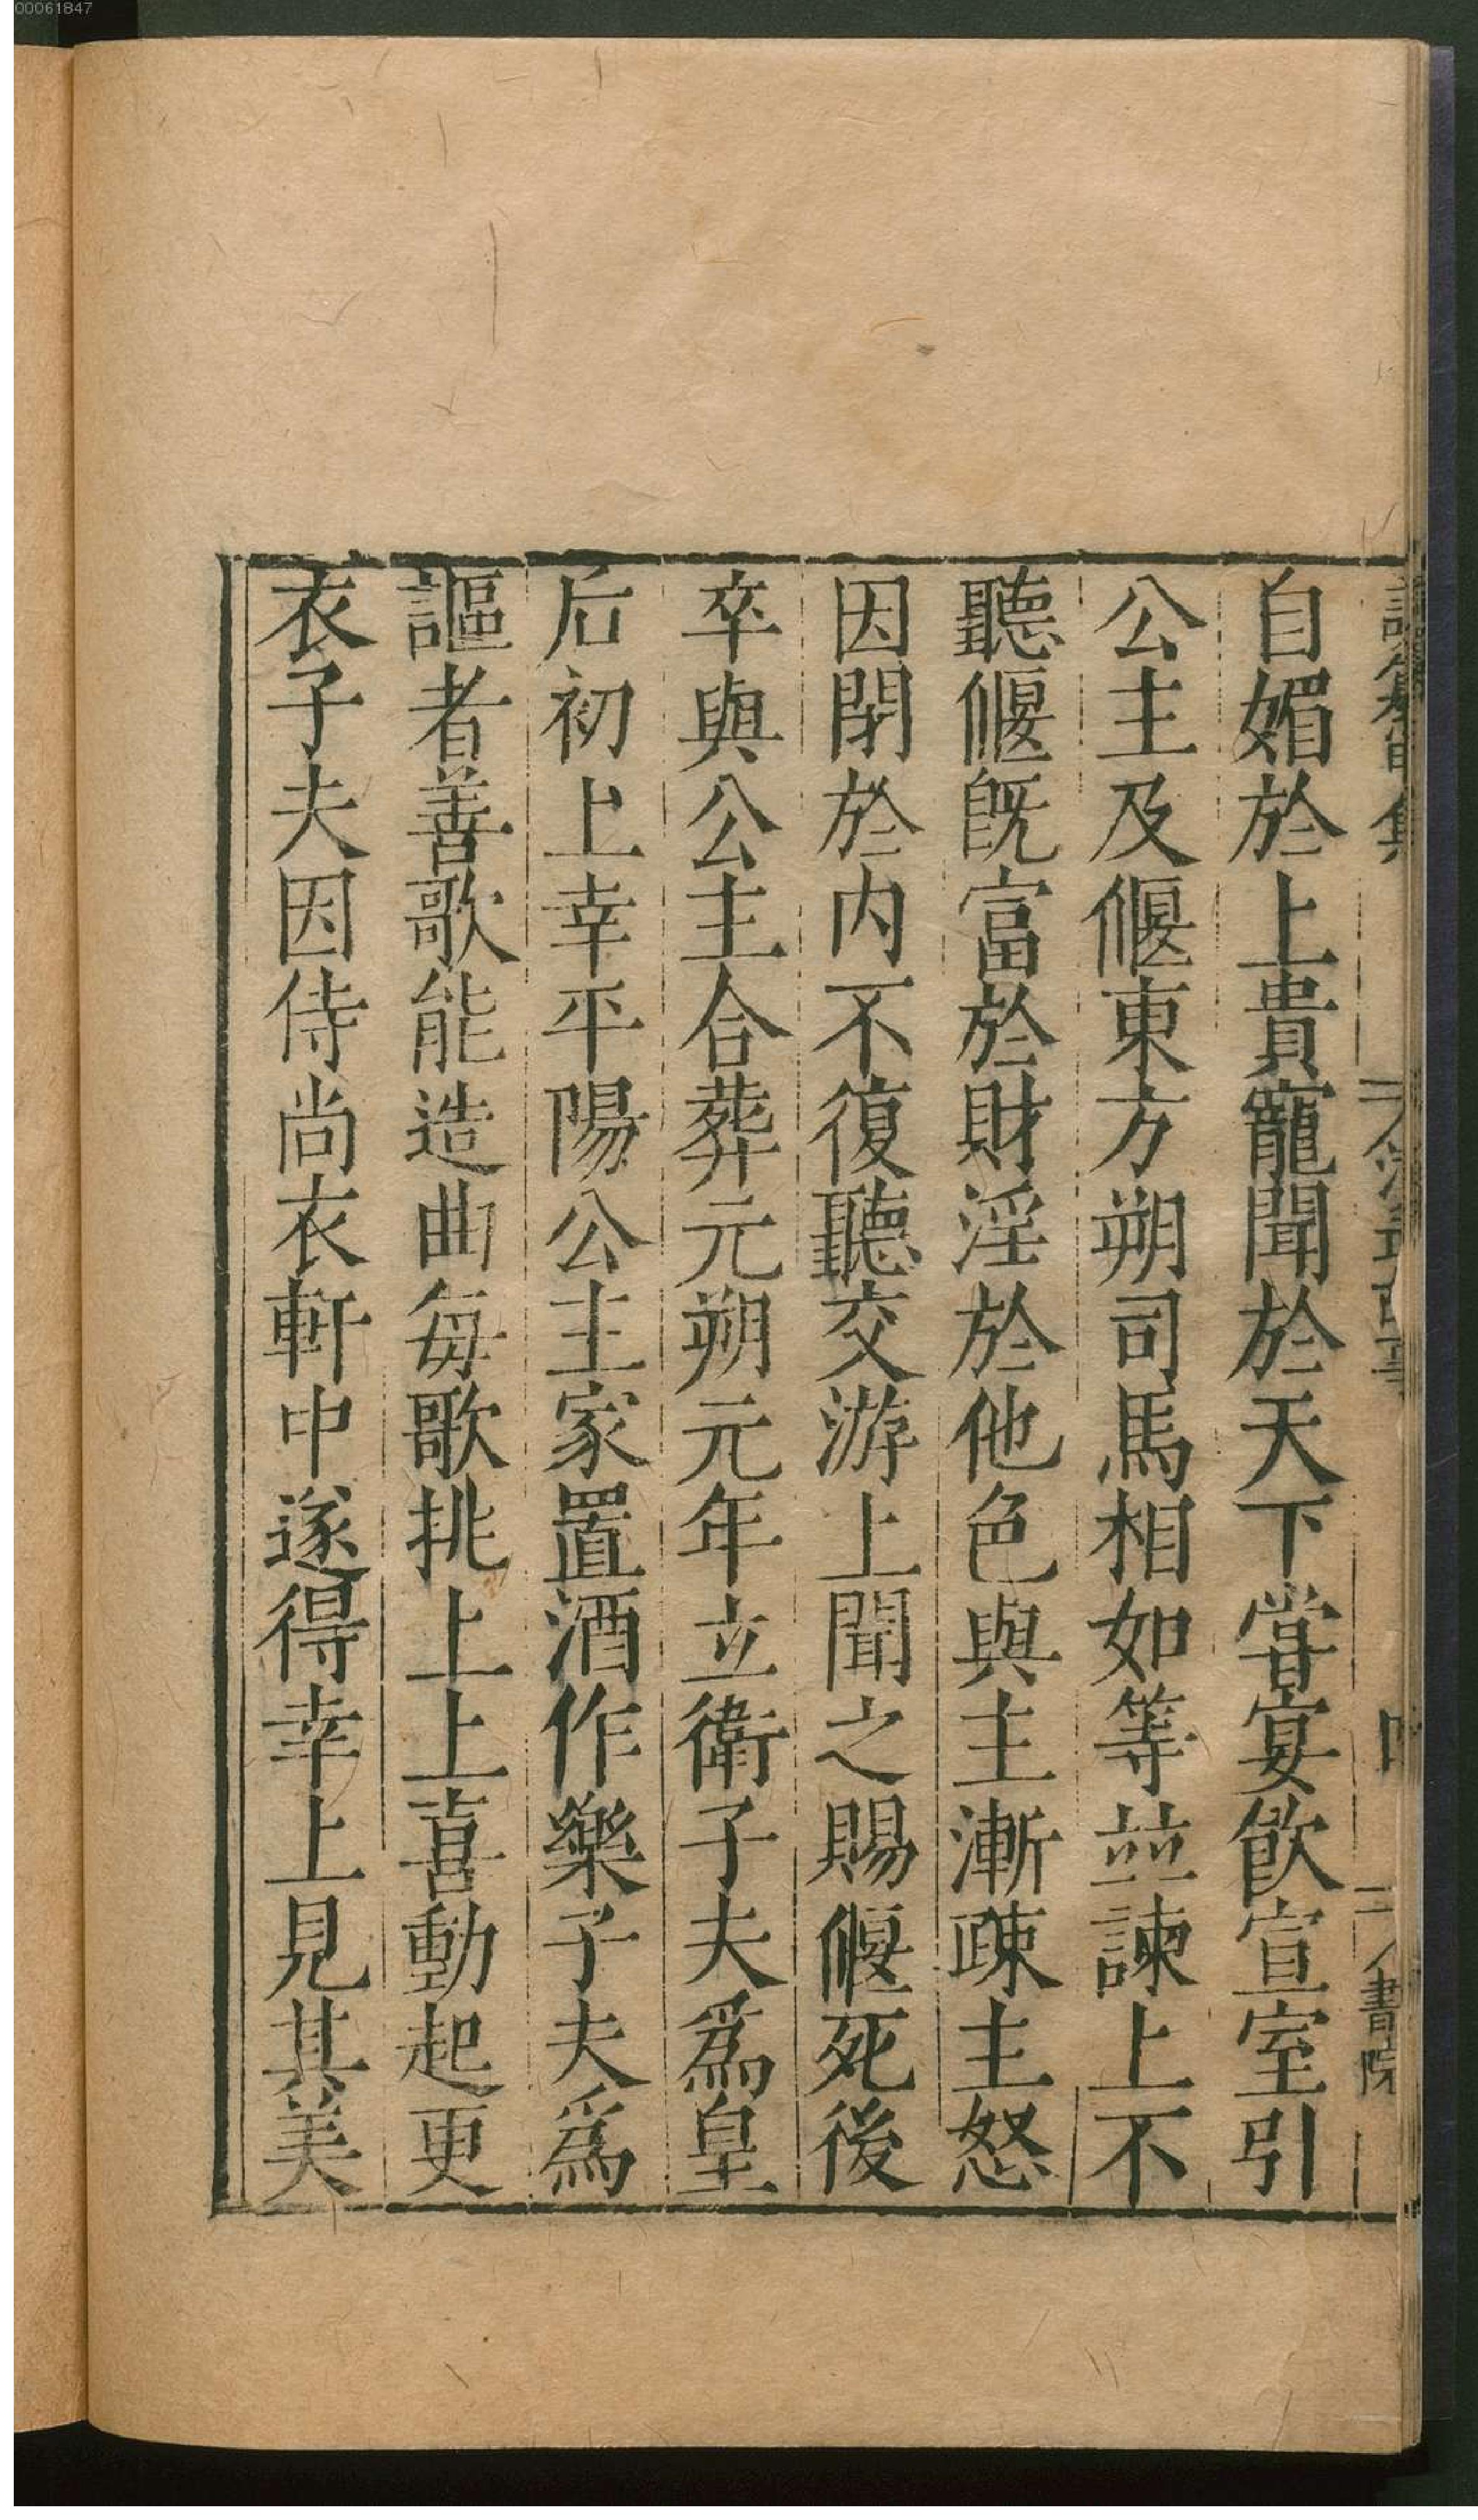 00061847
自媚於上貴寵聞於天下甞宴飮宣室引
公主及偃東方朔司馬相如等竝諫上不
聽偃旣富於財淫於他色與主漸疎主怒
因閉於內不復聽交游上聞之賜偃死後
卒與公主合葬元朔元年立衛子夫爲皇
后初上幸平陽公主家置酒作樂子夫爲
謳者善歌能造曲每歌挑上上喜動起更
衣子夫因侍尚衣軒中遂得幸上見其美